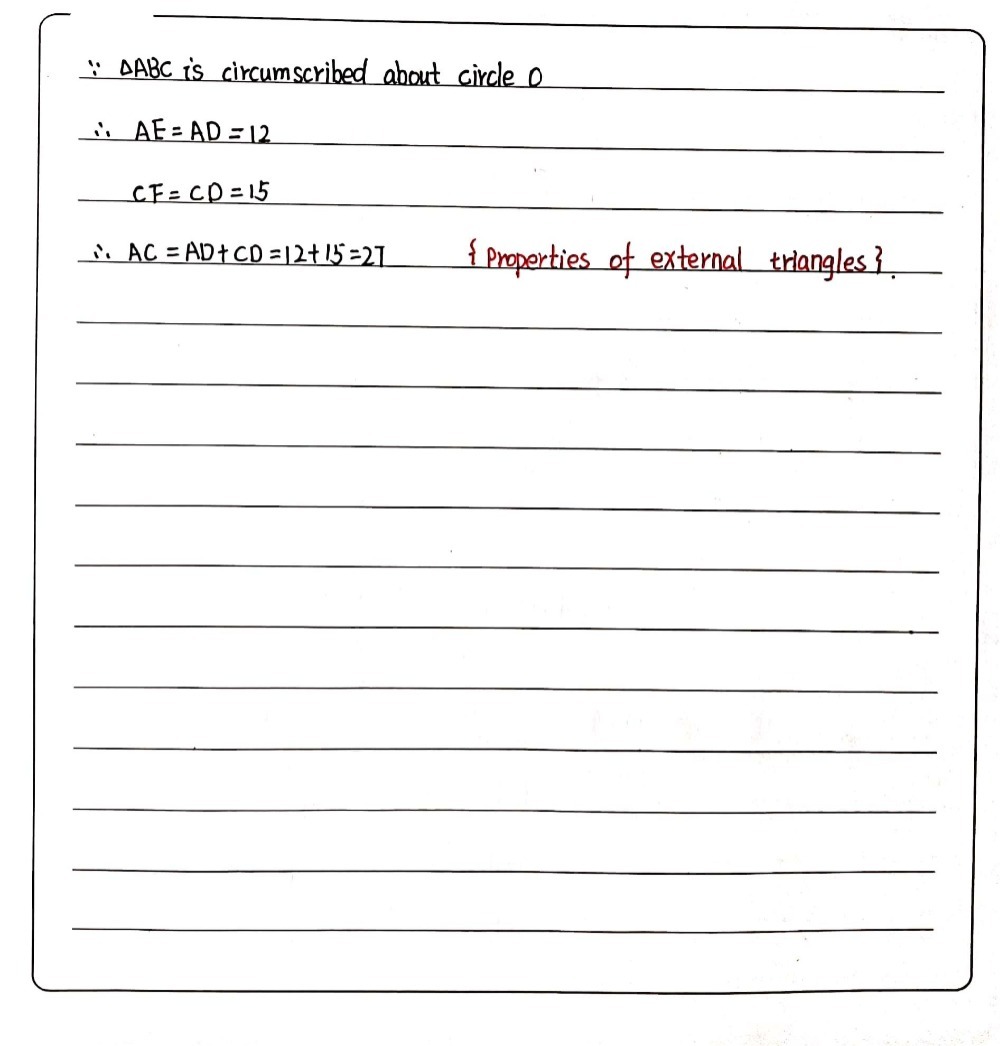 ∵ ΔABC is circumscribed about circle O
∴ AE = AD = 12
CF = CD = 15
∴ AC = AD + CD = 12 + 15 = 27 { Properties of external triangles }.